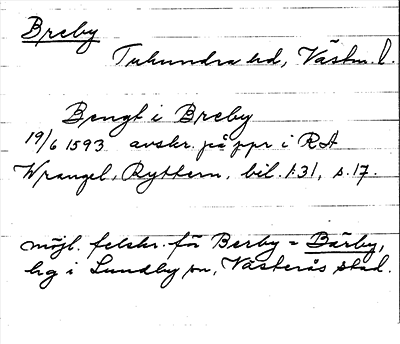 Breby
Tuhundra hd, Västm. l.
Bengt i Breby
19/6 1593 avskr. på ppr i RA
Wrangel, Ryttern, bil. 131, s. 17.
möjl. felskr. för Berby = Bärby,
hg i Lundby sn, Västerås stad.